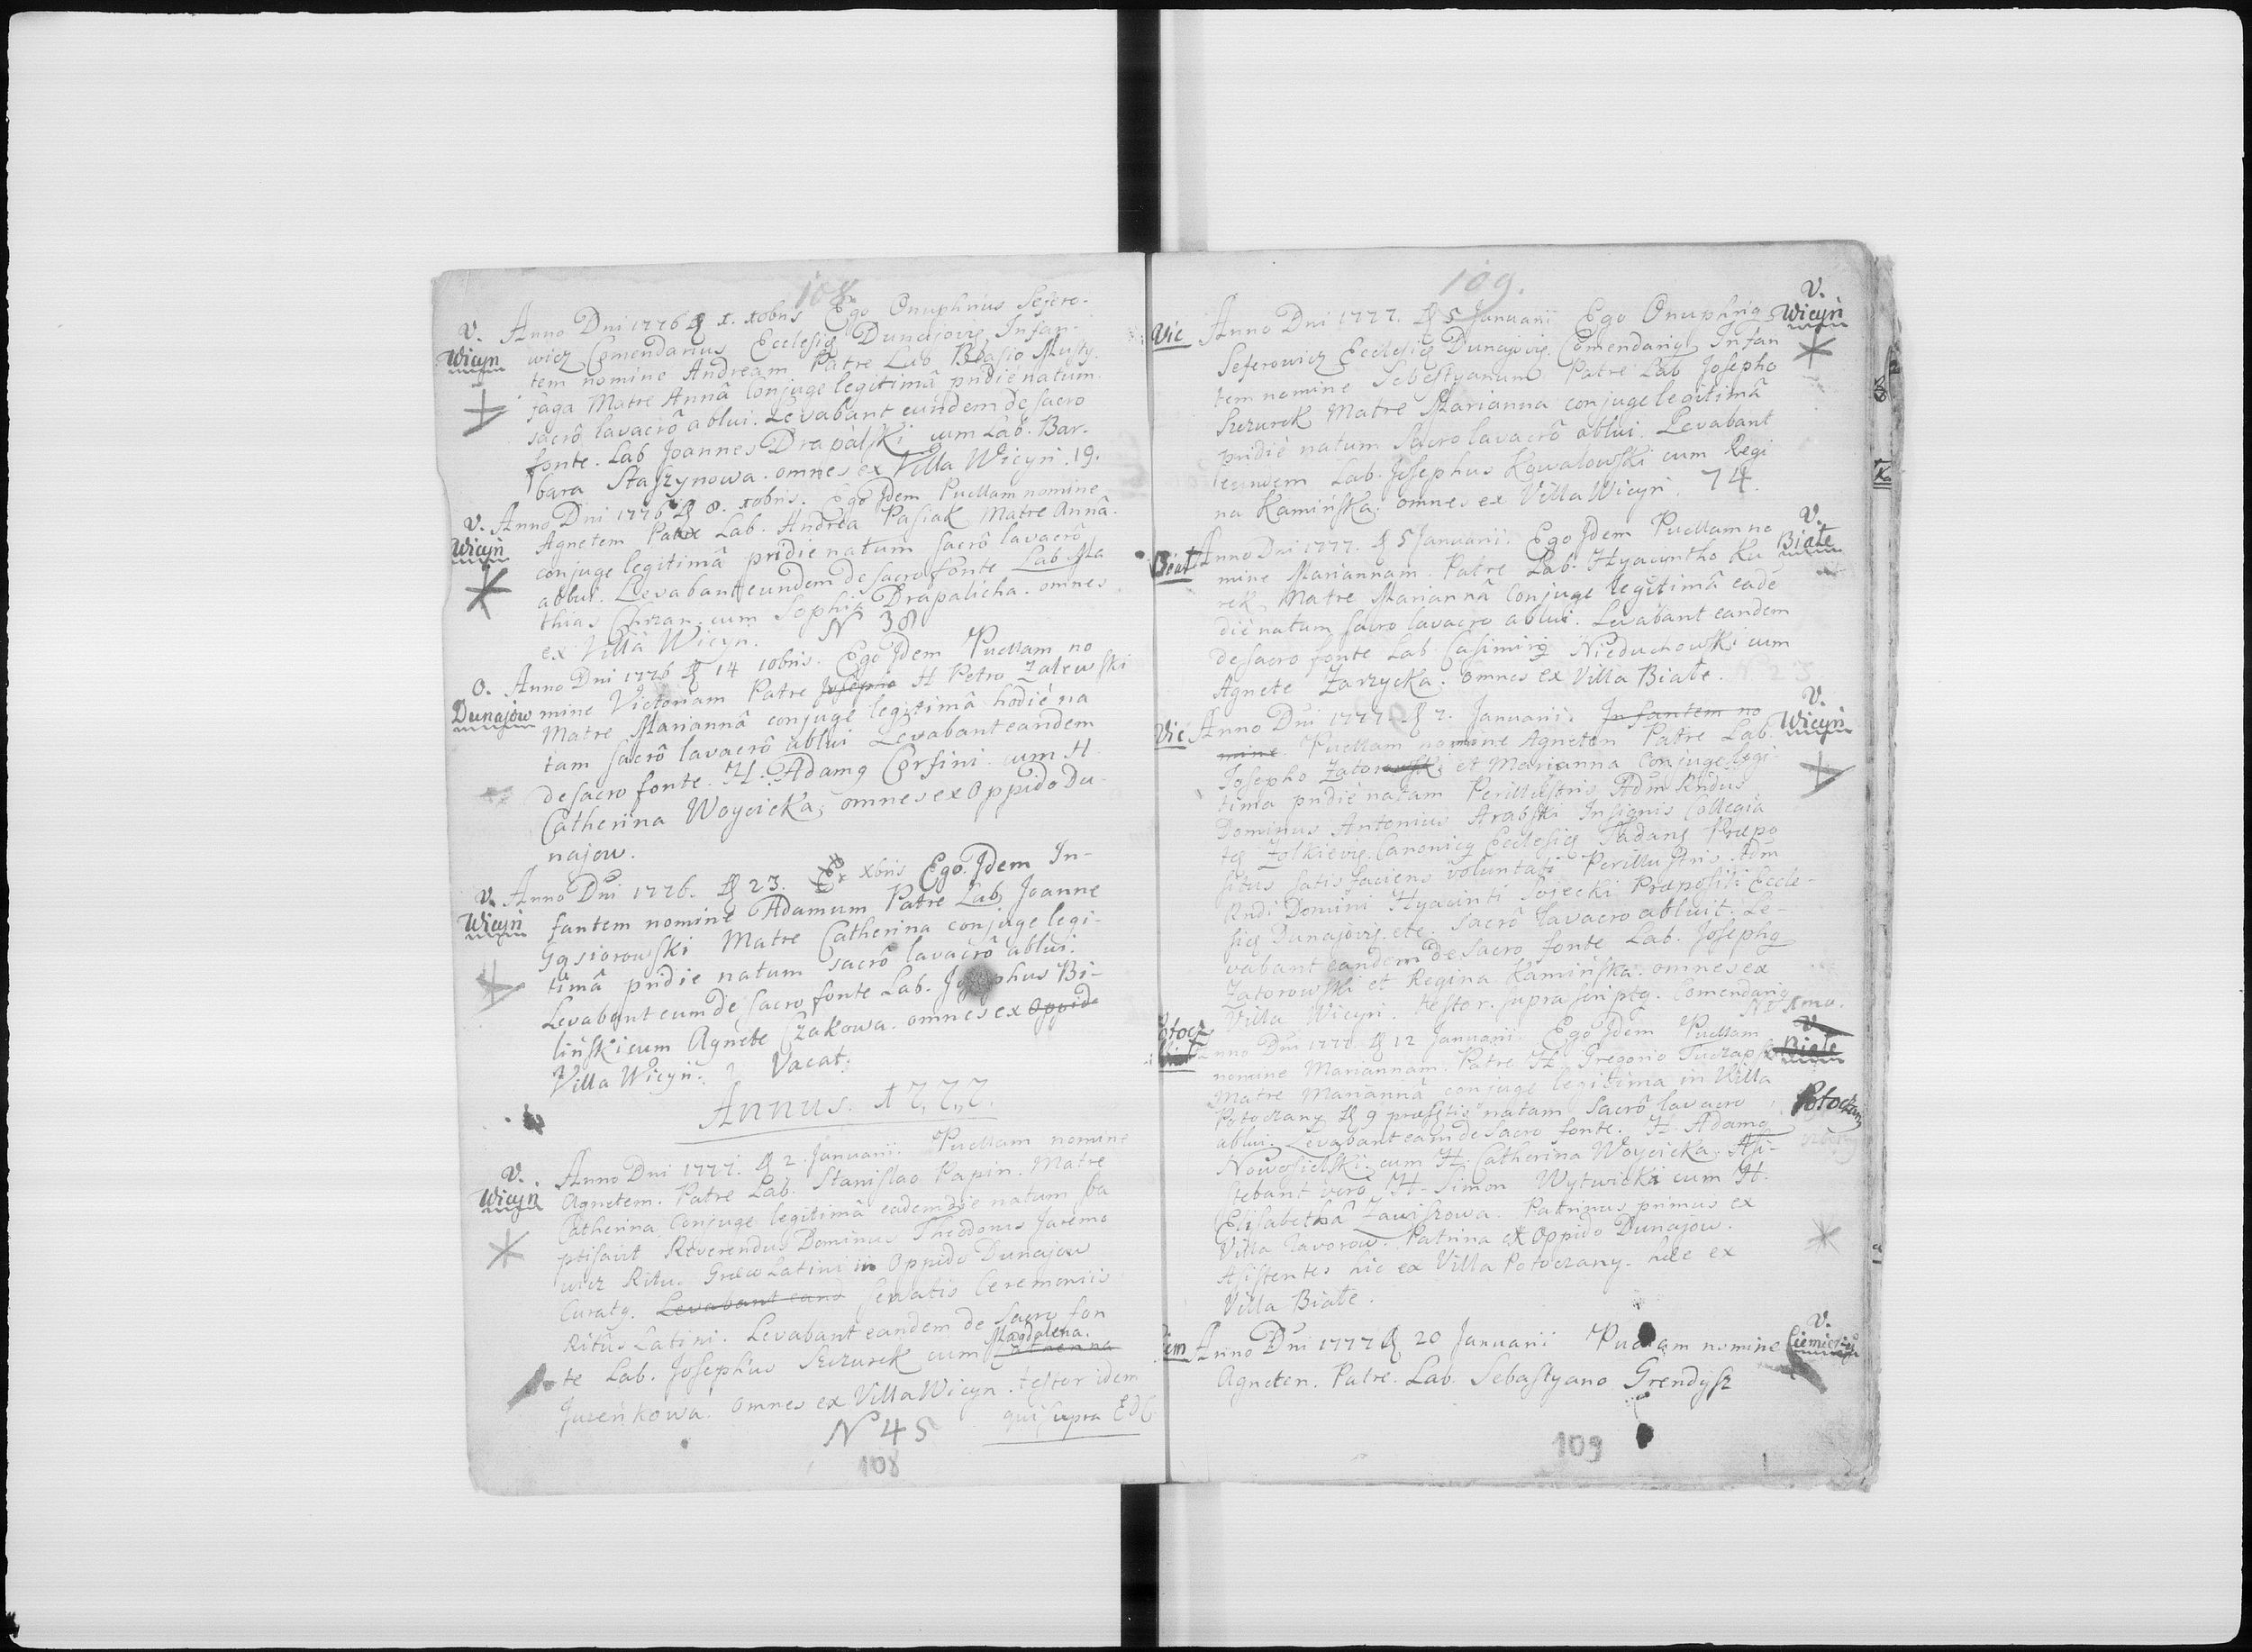 108
V.
Wicyn
Anno Dni 1776 d 1. xobris Ego Onuphrius Sefero-
wicz Comendarius Ecclesię Dunajovię Infan-
tem nomine Andream Patre Lab. Blasio Musty-
faga Matre Annâ Conjuge legitimâ pridiè natum
sacrô lavacrô ablui. Levabant eundem de sacro
fonte. Lab Joannes Drapalski cum Lab. Bar-
bara Staszynowa. omnes ex Villa Wicyn. 19.
V.
Wicyn
Anno Dni 1776 d 8. xobris. Ego Jdem Puellam nomine
Agnetem Patre Lab. Andrea Pasiak Matre Annâ
conjuge legitimâ pridie natum sacrô lavacrô
ablui. Levabant eundem de sacro fonte Lab Ma
thias cum Sophia Drapalicha. omnes
ex Villâ Wicyn. N 38
O.
Dunajow
Anno Dni 1776 d 14 10bris. Ego Jdem Puellam no
mine Victoriam Patre Josepho H Petro Zalewski
Matre Mariannâ conjuge legitimâ hodiè na
tam sacrô lavacrô ablui Levabant eandem
de sacro fonte. H. Adamg Corsini cum H
Catherina Woycicka; omnes ex Oppido Du-
najow.
V.
Wicyn
Anno Dni 1776. d 23. xbris Ego Jdem In-
fantem nomine Adamum Patre Lab Joanne
Gąsiorowski Matre Catherina conjuge legi-
timâ pridie natum sacrô lavacrô ablui.
Levabant eum de sacro fonte Lab. Josephus Bi-
liński cum Agnete Czakowa. omnes ex Oppido
Villa Wicyn. Vacat;
Annus. 1777.
V.
Wicyn
Anno Dni 1777. d 2. Januarii. Puellam nomine
Agnetem. Patre Lab. Stanislao Papin. Matre
Catherina Conjuge legitimâ eadem die natum ba
ptisavit Reverendus Dominus Theodorus Jaremo
wicz Ritus Græco Latini in Oppido Dunajow
Curatg. Levabant eand servatis Ceremoniis
Ritûs Latini. Levabant eandem de Sacro fon
te Lab. Josephus Szczurek cum Catherina Magdalena.
Jureńkowa. omnes ex Villa Wicyn. testor idem
N 45 qui supra
108
109.
V.
Wicyn
Vic
Anno Dni 1777. d 5 Januarii Ego Onuphrig
Seferowicz Ecclesię Dunajovię Comendarig Infan
tem nomine Sebestyanum Patre Lab Josepho
Szczurek Matre Marianna conjuge legitimâ
pridiè natum sacro lavacrô ablui. Levabant
eundem Lab. Josephus Kowalowski cum Regi
na Kamińska. omnes ex Villa Wicyn. 74.
V.
Białe
Białe
Anno Dni 1777. d 5 Januarii. Ego Jdem Puellam no
mine Mariannam. Patre Lab. Hyacintho Ku
rek Matre Mariannâ Conjuge legitimâ eade
die natum sacro lavacro ablui. Levabant eandem
de sacro fonte Lab. Casimirg Nieduchowski cum
Agnete Zarzycka. omnes ex Villa Białe. N 23
V.
Wicyn
Vic
Anno Dni 1777. d 7. Januarii. Infantem no
mine Puellam nomine Agnetem Patre Lab.
Josepho Zatorowski et Marianna Conjuge legi-
tima pridiè natam Perillustris Adm Rndus
Dominus Antonius Arabski Insignis Collegia
tę Zolkievię Canonicg Ecclesię Tadanę Præpo
situs satis faciens voluntati Perillustris Adm
Rndi Domini Hyacinti Sojecki Præpositi Eccle-
sięs Dunajovię. etc. sacrô lavacro abluit. Le-
vabant eandem de sacro fonte Lab. Josephg
Zatorowski et Regina Kamińska. omnes ex
Villa Wicyn. testor. supra scriptg. Comendarig
Potocz
V
Białe
Potoczan
Anno Dni 1777. d 12 Januarii. Ego Jdem Puellam
nomine Mariannam. Patre H. Gregorio Tuczapski
Matre Mariannâ conjuge legitima in Villa
Potoczany d 9 præsētis natam Sacrô lavacro
ablui. Levabant eam de sacro fonte. H. Adamg
Nowosielski cum H. Catherina Woycicka. Asi-
stebant verô H. Simon Wytwicki cum H.
Elisabethâ Zawiszowa. Patrinus primus ex
Villa Javorow. Patrina ex Oppido Dunajow.
Asistentes hic ex Villa Potoczany. hæc ex
Villa Białe.
V.
Ciemierzyn
iem
Anno Dni 1777 d 20 Januarii Puellam nomine
Agneten. Patre. Lab. Sebastyano Grendysz
109